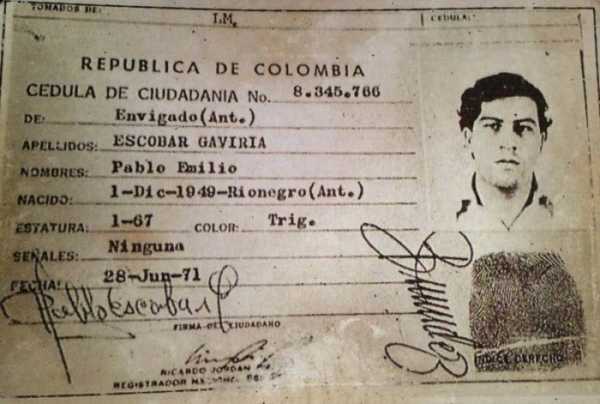 TOMADOS DE:
I.M.
CEDULA:
REPUBLICA DE COLOMBIA
CEDULA DE CIUDADANIA No. 8.345.766
DE: Envigado(Ant.)
APELLIDOS: ESCOBAR GAVIRIA
NOMBRES: Pablo Emilio
NACIDO: 1-Dic-1949-Rionegro(Ant.)
ESTATURA: 1-67 COLOR: Trig.
SEÑALES: Ninguna
FECHA: 28-Jun-71
Pablo Escobar G
FIRMA DEL CIUDADANO
INDICE DERECHO
RICARDO JORDAN
REGISTRADOR